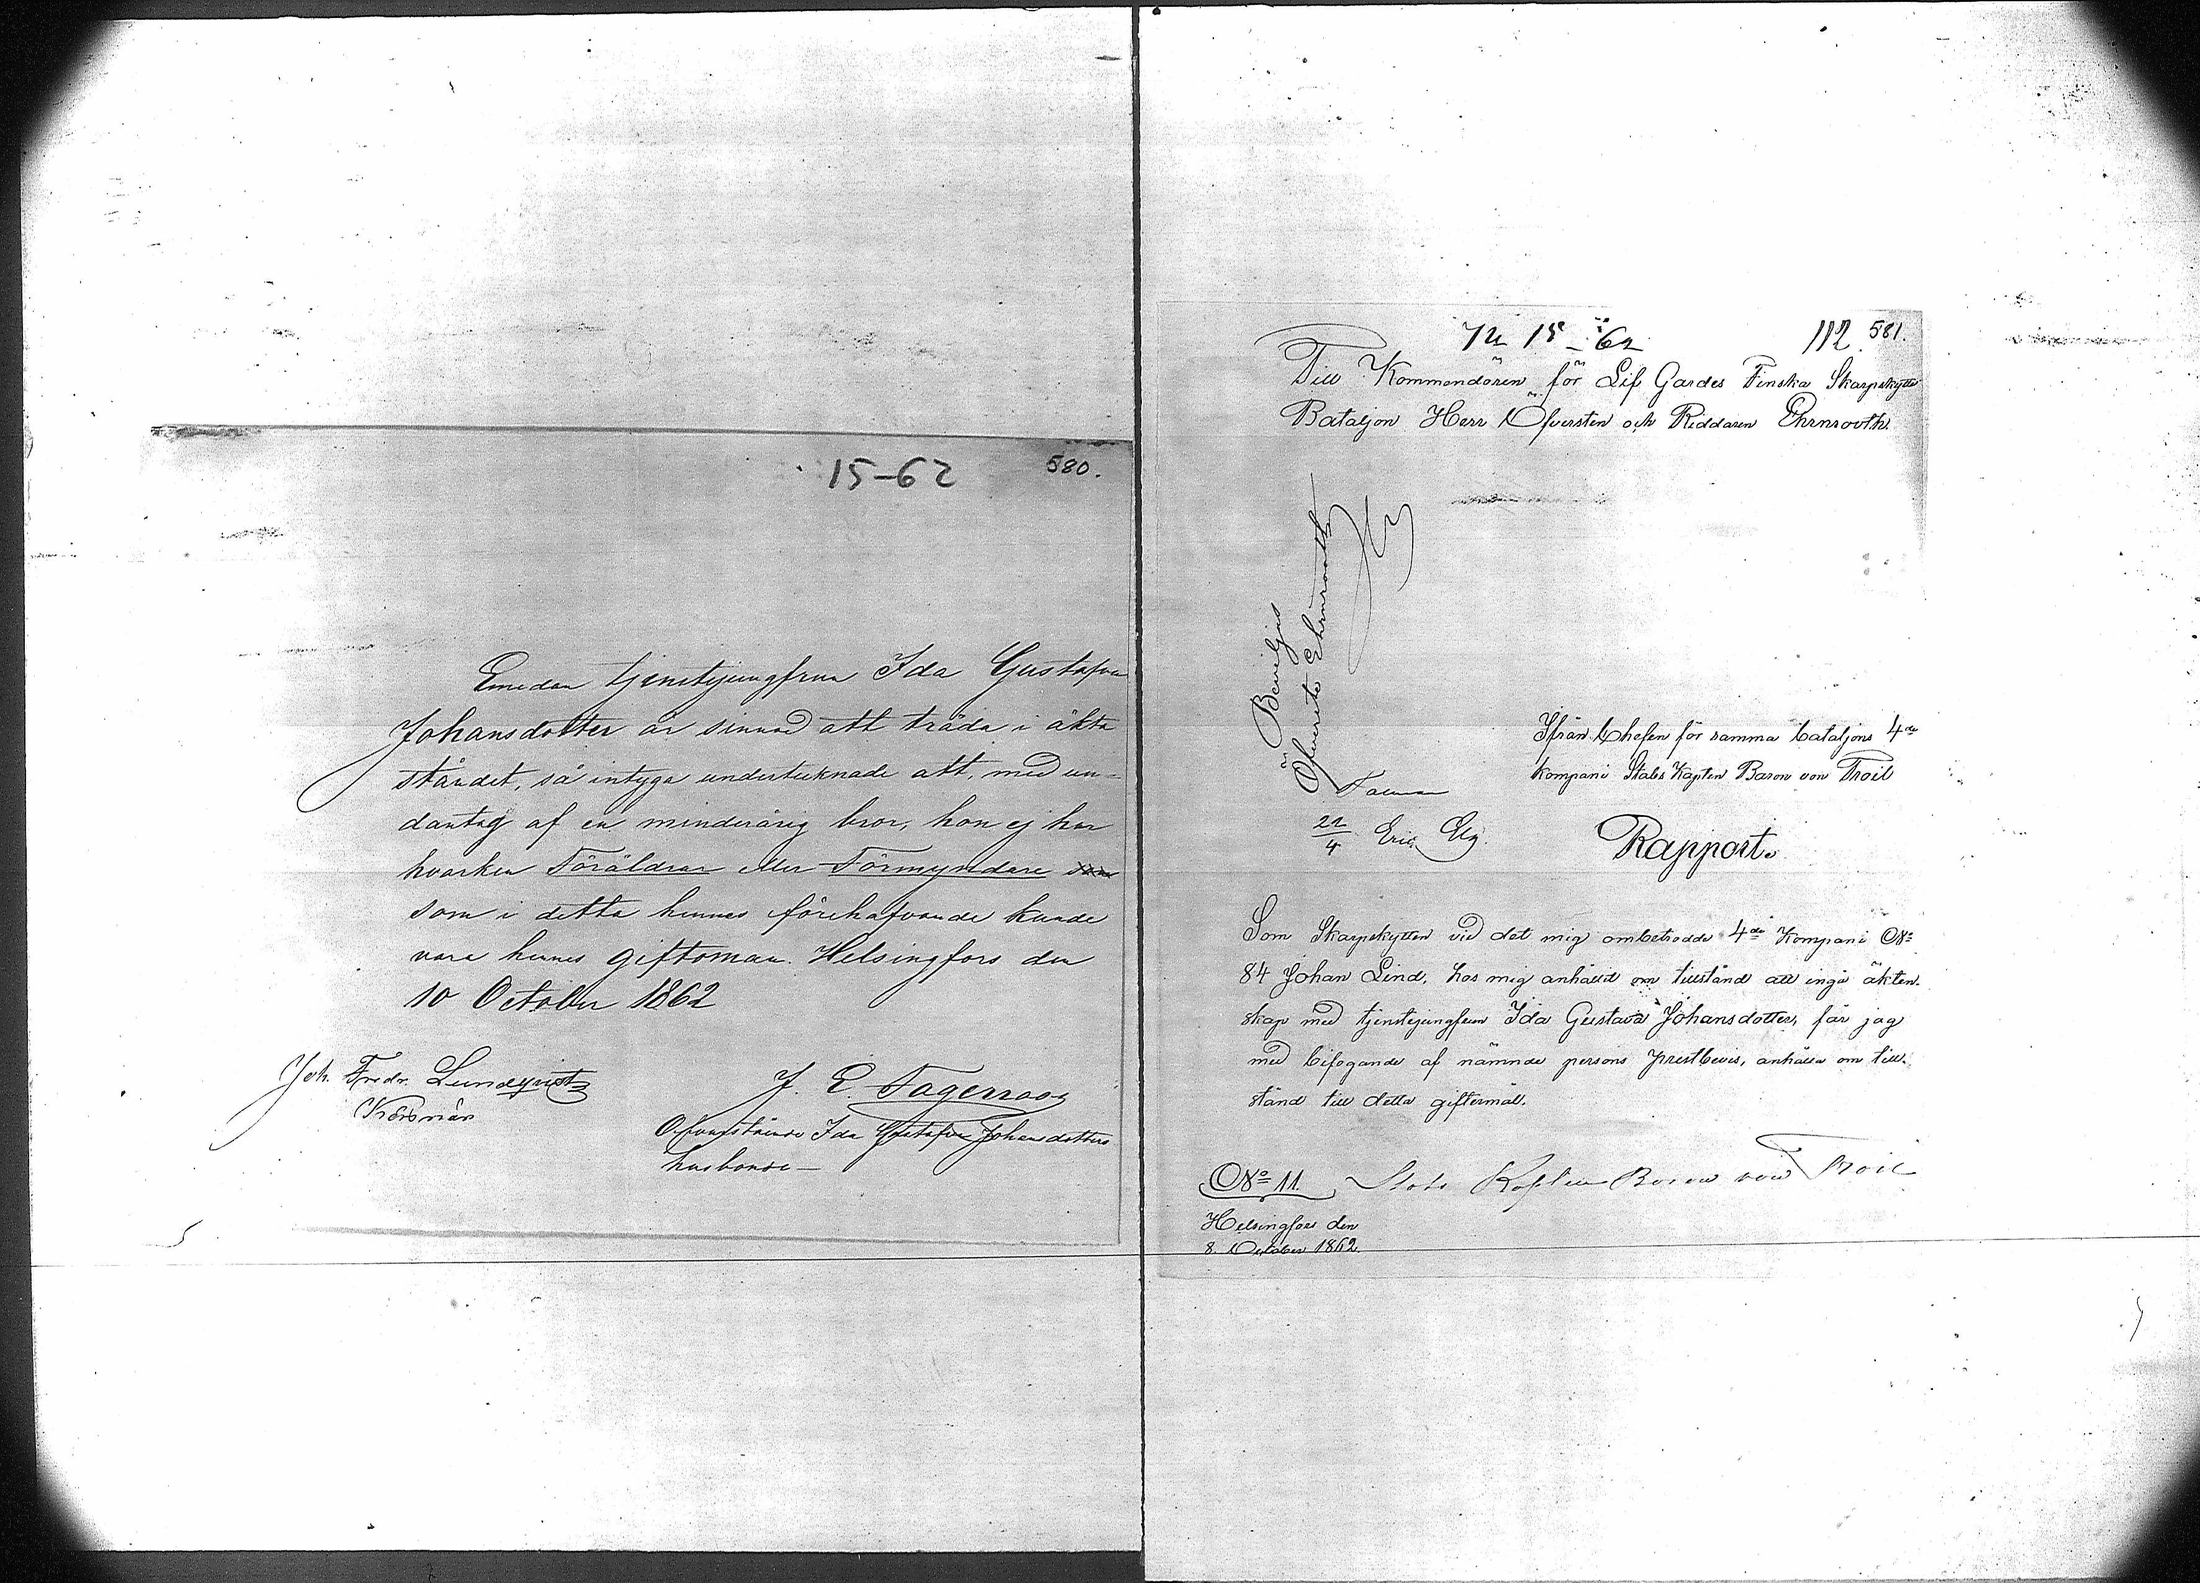 15-62
580.
Emedan tjenstejungfrun Ida Gustafva
Johansdotter är sinnad att träda i äkta
ståndet, så intyga undertecknade att, med un-
dantag af en minderårig bror, hon ej har
hvarken Föräldrar eller Förmyndare som
som i detta hennes förehafvande kunde
vara hennes giftoman. Helsingfors den
10 October 1862
Joh. Fredr. Lundqvist
J. E. Fagerroos
Ofvanstående Ida Gustafva Johansdotters
husbonde
15-62
112
581.
Till Kommendören för Lif Gardes Finska Skarpskytte
Bataljon Herr Öfversten och Riddaren Ehrnrooth.
Beviljas
Öfverste Ehrnrooth
Ifrån Chefen för samma bataljons 4de
kompani Stabs Kapten Baron von Troil
22/4 Eric Elg.
Rapport.
Som Skarpskytten vid det mig ombetrodda 4de Kompani No
84 Johan Lind, hos mig anhållit om tillstånd att ingå äkten-
skap med tjenstejungfrun Ida Gustava Johansdotter, får jag
med bifogande af nämnde persons prestbevis, anhålla om till-
stånd till detta giftermål.
Stabs Kapten Baron von Troil
No 11.
Helsingfors den
8 October 1862.